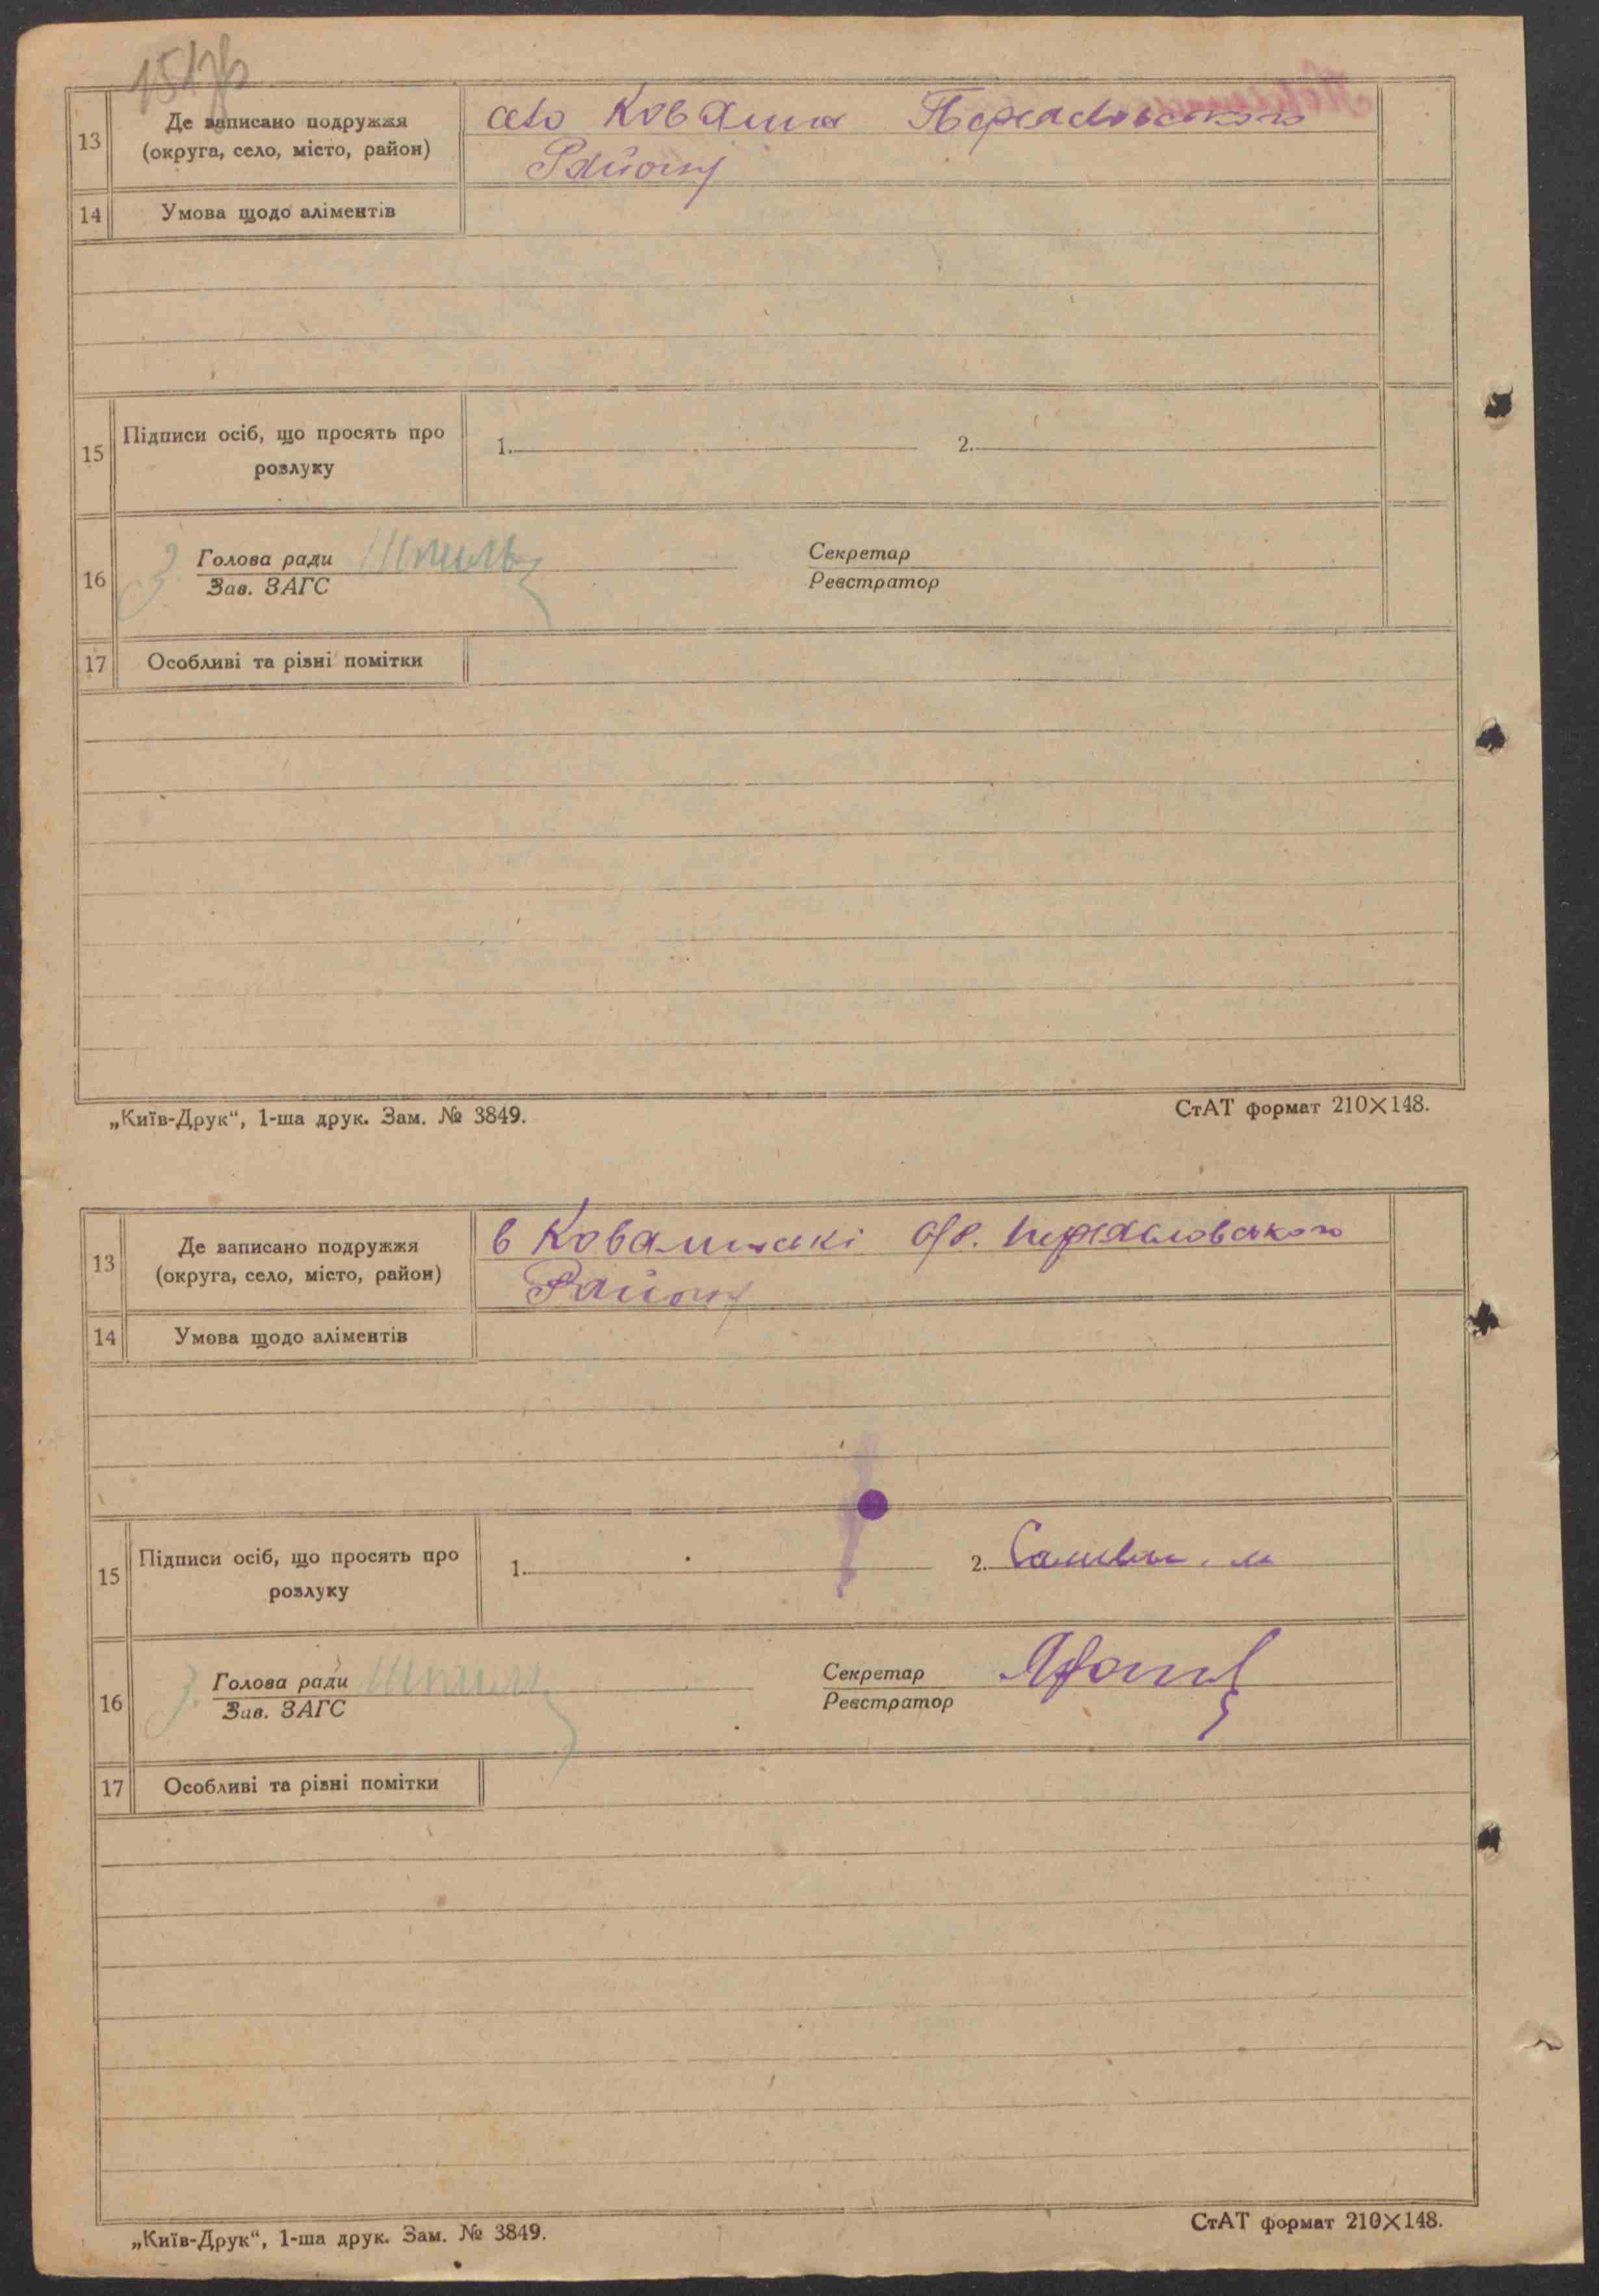 13
Де записано подружжя
(округа, село, місто, район)
село
Району
14
Умова щодо аліментів
15
Підписи осіб, що просять про
розлуку
1.
2.
16
Голова ради
Зав. ЗАГС
Секретар
Реєстратор
17
Особливі та різні помітки
„Київ-Друк“, 1-ша друк. Зам. № 3849.
СтАТ формат 210×148.
13
Де записано подружжя
(округа, село, місто, район)
в
Району
14
Умова щодо аліментів
15
Підписи осіб, що просять про
розлуку
1.
2.
16
Голова ради
Зав. ЗАГС
Секретар
Реєстратор
17
Особливі та різні помітки
„Київ-Друк“, 1-ша друк. Зам. № 3849.
СтАТ формат 210×148.